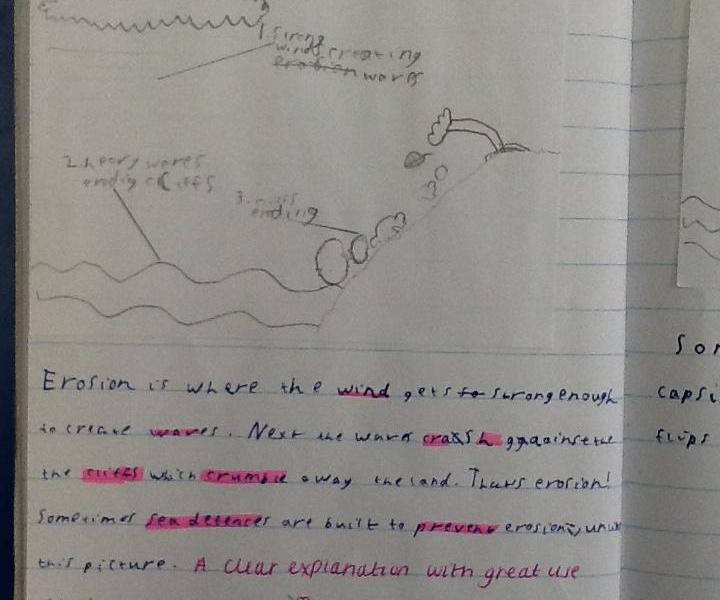 1. Strong
winds creating
erosion waves
2. heavy waves
ending cliffs
3. cliffs
ending
Erosion is where the wind gets to strong enough
to create waves. Next the waves crash against the
the cliffs which crumble away the land. Thats erosion!
Sometimes sea defences are built to prevent erosion,
this picture. A clear explanation with great use
Sor
capsi
flips